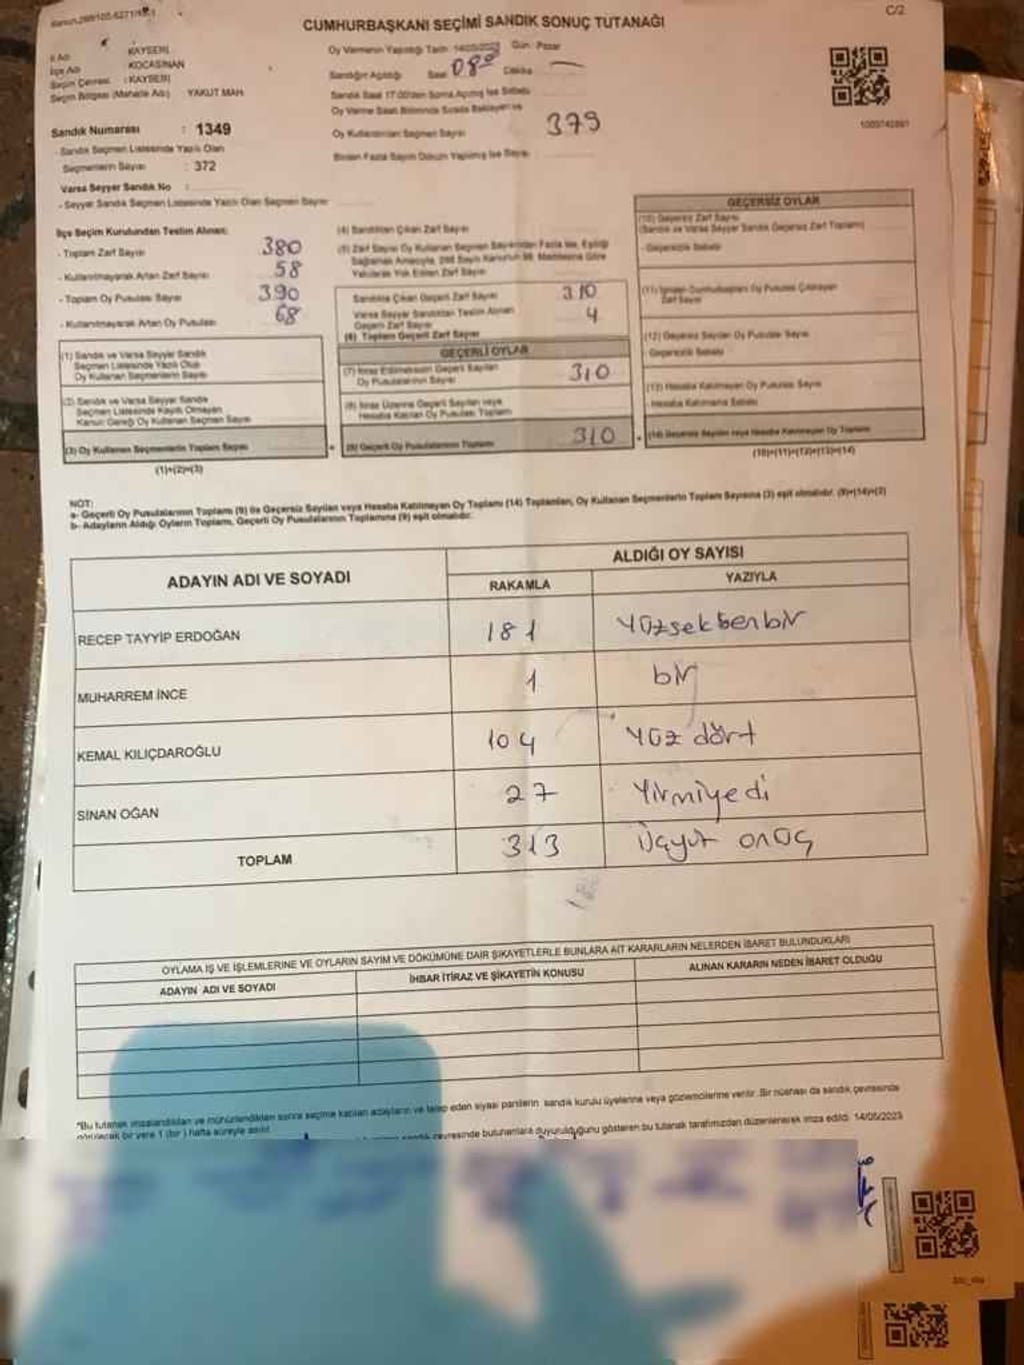 C/2
CUMHURBAŞKANI SEÇİMİ SANDIK SONUÇ TUTANAĞI
İl Adı KAYSERİ
İlçe Adı KOCASİNAN
Seçim Çevresi : KAYSERİ
Seçim Bölgesi (Mahalle Adı) YAKUT MAH.
Sandık Numarası : 1349
- Sandık Seçmen Listesinde Yazılı Olan
Seçmenlerin Sayısı : 372
Varsa Seyyar Sandık No :
- Seyyar Sandık Seçmen Listesinde Yazılı Olan Seçmen Sayısı
Oy Vermenin Yapıldığı Tarih: 14/05/2023 Gün: Pazar
Sandığın Açıldığı Saat 08 Dakika
Oy Kullanan Seçmen Sayısı 379
İlçe Seçim Kurulundan Teslim Alınan:
- Toplam Zarf Sayısı 380
- Kullanılmayarak Artan Zarf Sayısı 58
- Toplam Oy Pusulası Sayısı 390
- Kullanılmayarak Artan Oy Pusulası 68
(1) Sandık ve Varsa Seyyar Sandık
Seçmen Listesinde Yazılı Olup
Oy Kullanan Seçmenlerin Sayısı
(2) Sandık ve Varsa Seyyar Sandık
Seçmen Listesinde Kayıtlı Olmayan
Kanun Gereği Oy Kullanan Seçmen Sayısı
(3) Oy Kullanan Seçmenlerin Toplam Sayısı
(1)+(2)=(3)
(4) Sandıktan Çıkan Zarf Sayısı
Sandıkta Çıkan Geçerli Zarf Sayısı 310
Varsa Seyyar Sandıktan Teslim Alınan
Geçerli Zarf Sayısı 4
(6) Toplam Geçerli Zarf Sayısı
GEÇERLİ OYLAR
(7) İtiraz Edilmeksizin Geçerli Sayılan
Oy Pusulalarının Sayısı 310
(8) İtiraz Üzerine Geçerli Sayılan veya
Hesaba Katılan Oy Pusulası Toplamı
(9) Geçerli Oy Pusulalarının Toplamı 310
GEÇERSİZ OYLAR
(10) Geçersiz Zarf Sayısı
(Sandık ve Varsa Seyyar Sandık Geçersiz Zarf Toplamı)
- Geçersizlik Sebebi
(12) Geçersiz Sayılan Oy Pusulası Sayısı
Geçersizlik Sebebi
(13) Hesaba Katılmayan Oy Pusulası Sayısı
- Hesaba Katılmama Sebebi
(14) Geçersiz Sayılan veya Hesaba Katılmayan Oy Toplamı
(10)+(11)+(12)+(13)=(14)
NOT:
a- Geçerli Oy Pusulalarının Toplamı (9) ile Geçersiz Sayılan veya Hesaba Katılmayan Oy Toplamı (14) Toplamları, Oy Kullanan Seçmenlerin Toplam Sayısına (3) eşit olmalıdır. (9)+(14)=(3)
b- Adayların Aldığı Oyların Toplamı, Geçerli Oy Pusulalarının Toplamına (9) eşit olmalıdır.
ADAYIN ADI VE SOYADI ALDIĞI OY SAYISI
RAKAMLA YAZIYLA
RECEP TAYYİP ERDOĞAN 181 Yüzseksenbir
MUHARREM İNCE 1 bir
KEMAL KILIÇDAROĞLU 104 Yüz dört
SİNAN OĞAN 27 Yirmiyedi
TOPLAM 313 Üçyüz onüç
OYLAMA İŞ VE İŞLEMLERİNE VE OYLARIN SAYIM VE DÖKÜMÜNE DAİR ŞİKAYETLERLE BUNLARA AİT KARARLARIN NELERDEN İBARET BULUNDUKLARI
ADAYIN ADI VE SOYADI İHBAR İTİRAZ VE ŞİKAYETİN KONUSU ALINAN KARARIN NEDEN İBARET OLDUĞU
*Bu tutanak imzalandıktan ve mühürlendikten sonra seçime katılan adayların ve talep eden siyasi partilerin sandık kurulu üyelerine veya gözlemcilerine verilir. Bir nüshası da sandık çevresinde
görülecek bir yere 1 (bir) hafta süreyle asılır.
çevresinde bulunanlara duyurulduğunu gösteren bu tutanak tarafımızdan düzenlenerek imza edildi. 14/05/2023